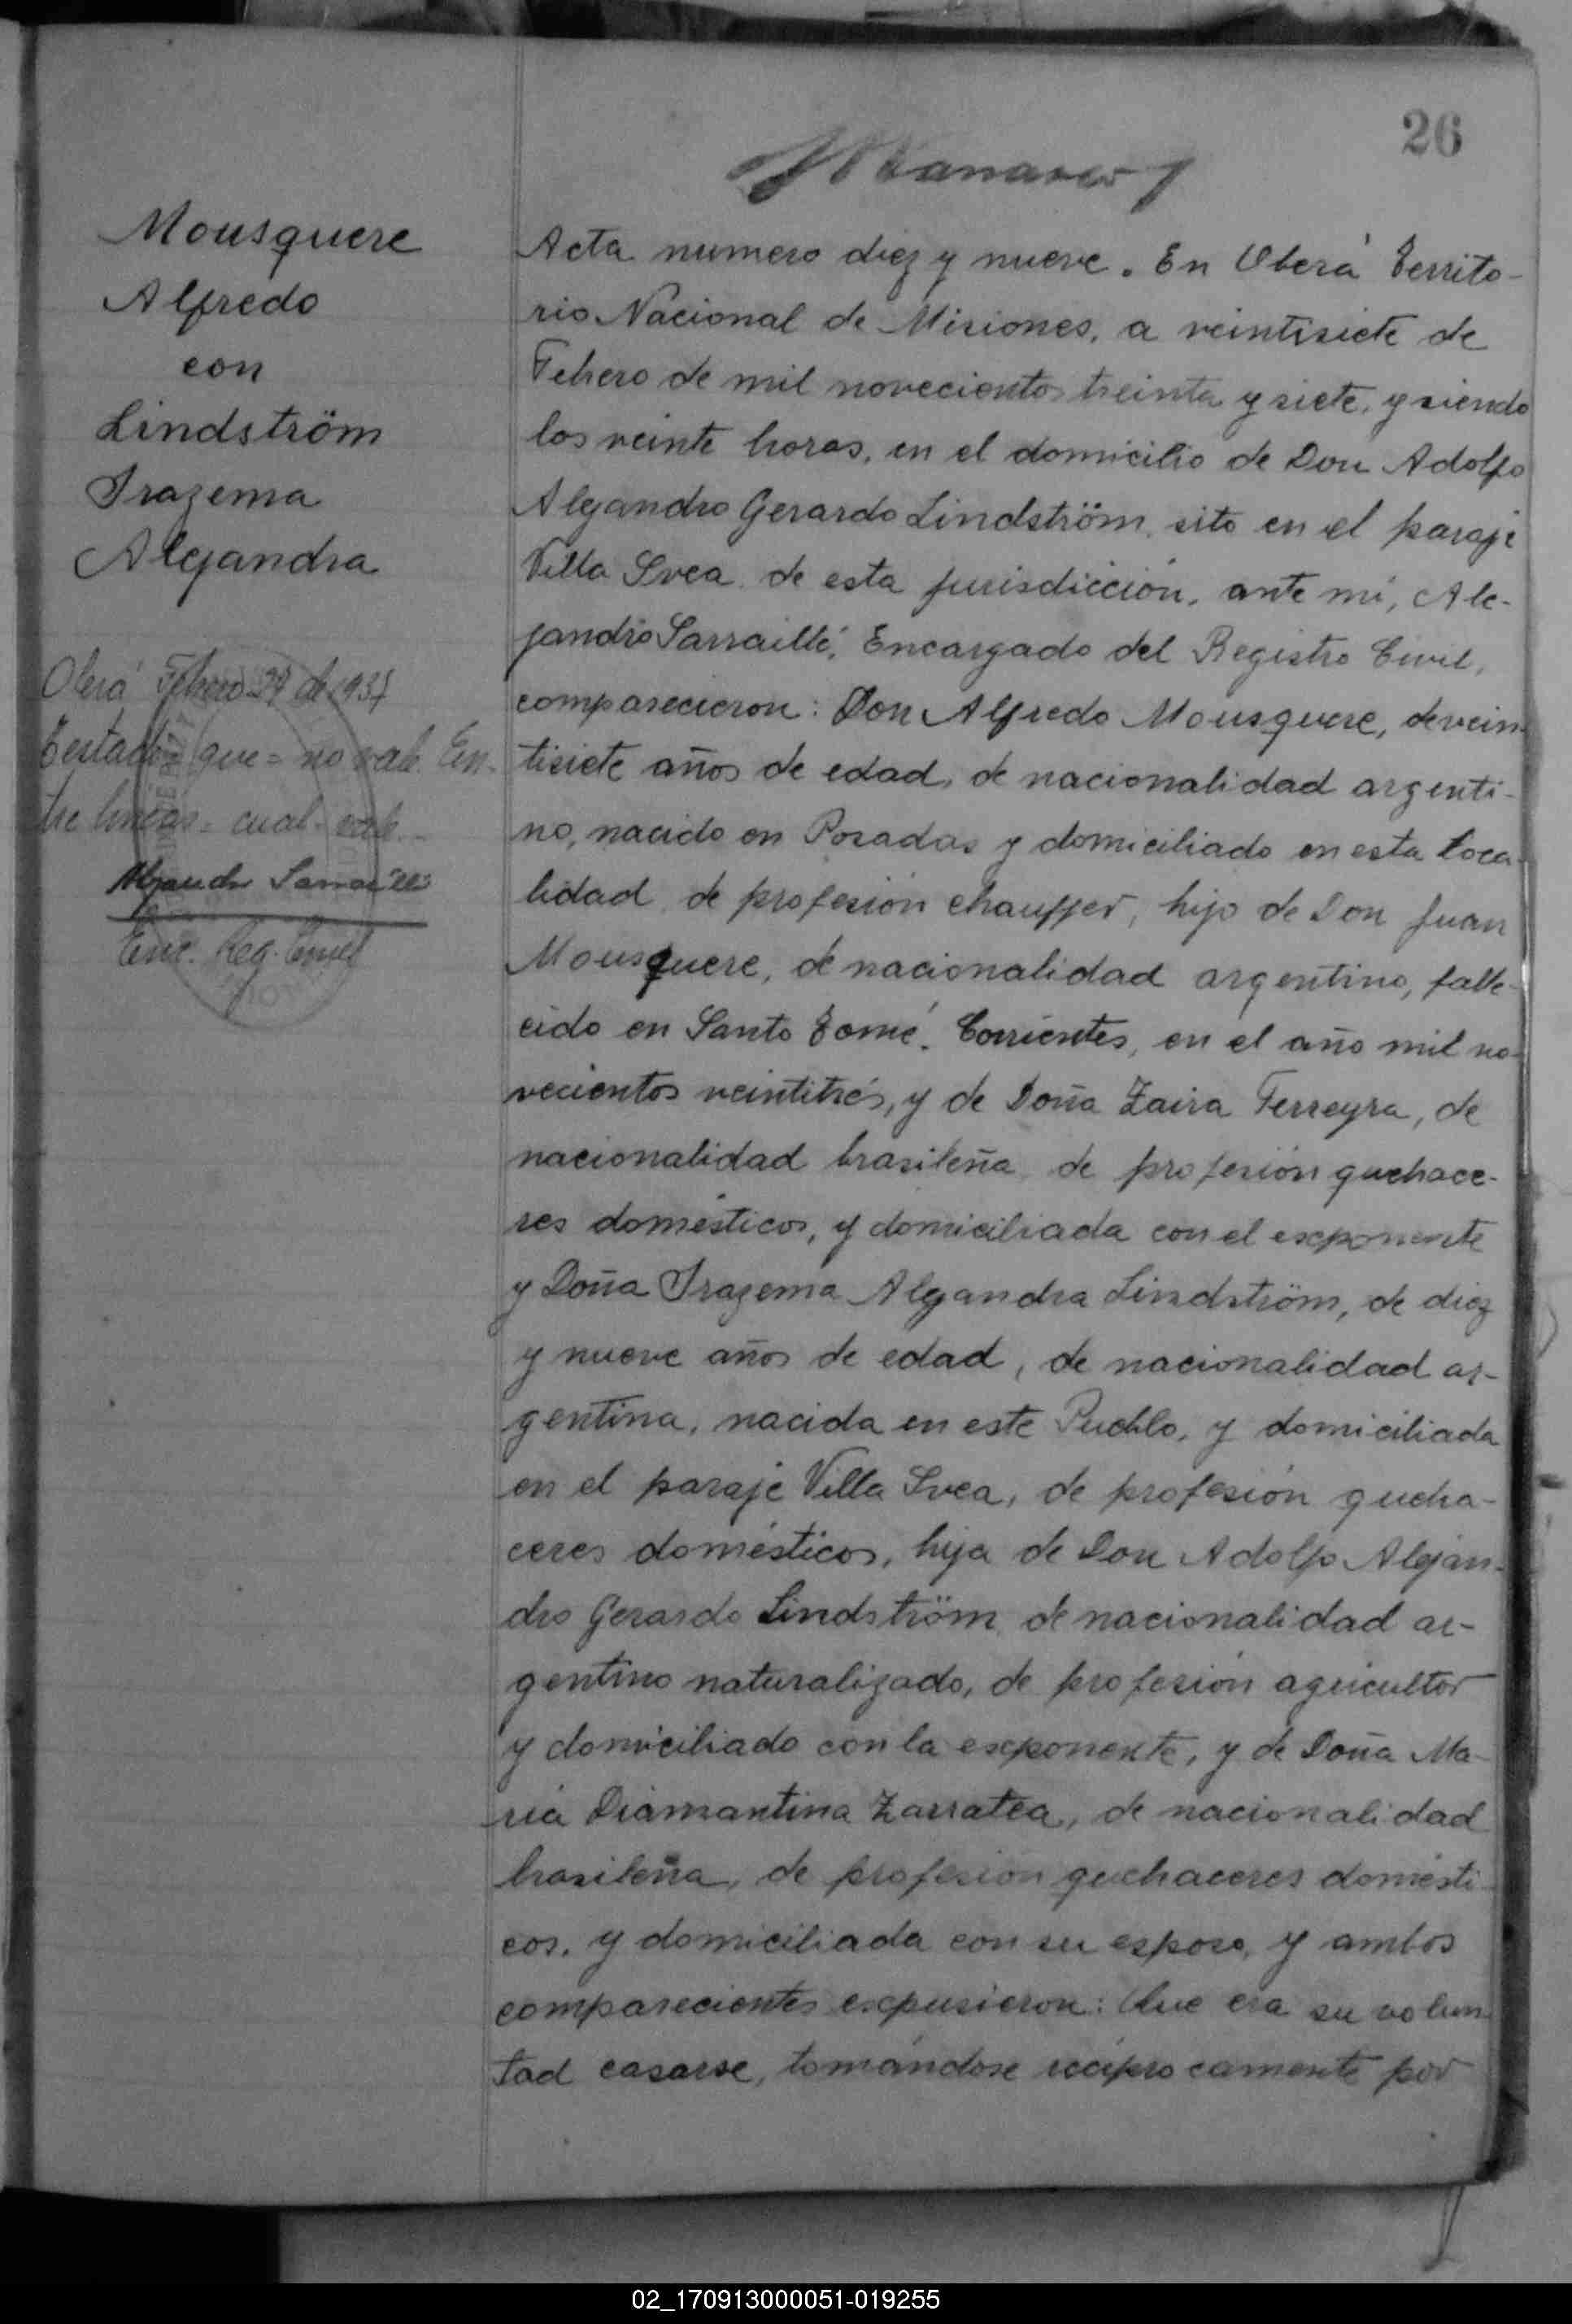 26
Mousquere
Alfredo
con
Lindström
Irazema
Alejandra
Oberá Febrero 27 de 1937
Testado que = no vale. En-
tre lineas = cual = vale.
Alejandro Sarraillé
Enc. Reg. Civil
Acta numero diez y nueve. En Oberá Territo-
rio Nacional de Misiones, a veintisiete de
Febrero de mil novecientos treinta y siete, y siendo
las veinte horas, en el domicilio de Don Adolfo
Alejandro Gerardo Lindström, sito en el paraje
Villa Svea, de esta jurisdicción, ante mí, Ale-
jandro Sarraillé, Encargado del Registro Civil,
comparecieron: Don Alfredo Mousquere, de vein-
tisiete años de edad, de nacionalidad argenti-
no, nacido en Posadas y domiciliado en esta loca-
lidad, de profesión chauffer, hijo de Don Juan
Mousquere, de nacionalidad argentino, falle-
cido en Santo Tomé, Corrientes, en el año mil no-
vecientos veintitrés, y de Doña Zaira Ferreyra, de
nacionalidad brasileña, de profesión quehace-
res domésticos, y domiciliada con el exponente
y Doña Irazema Alejandra Lindström, de diez
y nueve años de edad, de nacionalidad ar-
gentina, nacida en este Pueblo, y domiciliada
en el paraje Villa Svea, de profesión queha-
ceres domésticos, hija de Don Adolfo Alejan-
dro Gerardo Lindström, de nacionalidad ar-
gentino naturalizado, de profesión agricultor
y domiciliado con la exponente, y de Doña Ma-
ria Diamantina Zarratea, de nacionalidad
brasileña, de profesión quehaceres domésti-
cos, y domiciliada con su esposo, y ambos
comparecientes expusieron: Que era su volun-
tad casarse, tomándose recíprocamente por
02_170913000051-019255